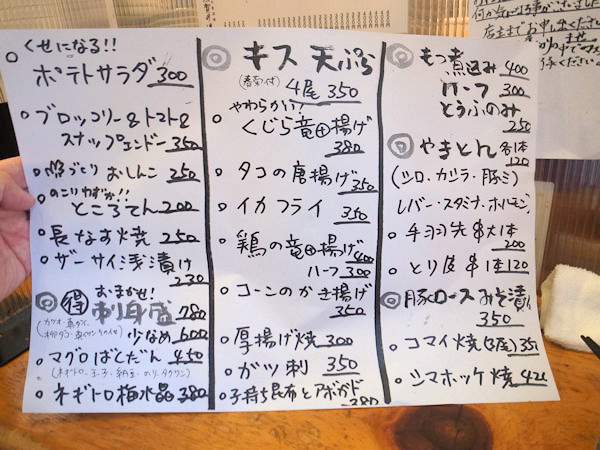 くせになる!!
ポテトサラダ 300
ブロッコリー&トマト&
スナップエンドー 350
おしんこ 250
のこりわずか!!
ところてん 200
長なす焼 250
ザーサイ浅漬け
230
得 おまかせ!
刺身盛 780
少なめ 600
マグロばくだん 450
(ネギトロ、玉子、納豆、のり、タクワン)
ネギトロ梅水晶 380
キス天ぷら
4尾 350
やわらかい!
くじら竜田揚げ
380
タコの唐揚げ
350
イカフライ 350
鶏の竜田揚げ
400
ハーフ 300
コーンのかき揚げ
350
厚揚げ焼 300
ガツ刺 350
子持ち昆布とアボカド
380
もつ煮込み 400
ハーフ 300
とうふのみ
250
やきとん 各1本
120
(シロ・カシラ・豚ミミ
レバー・スタミナ・ホルモン)
手羽先串大1本
200
とり皮串1本 120
豚ロースみそ漬け
350
コマイ焼(3尾) 350
シマホッケ焼 420